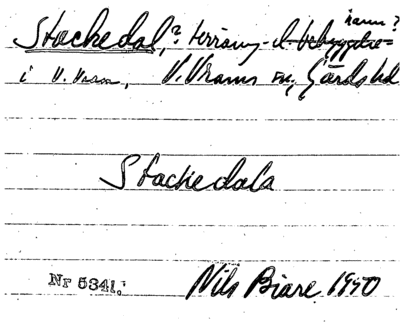 namn?
Stackedal,? terräng- el. bebyggelse=
i V. Vram, V. Vrams sn, Gärds hd
Stackedala
Nr 5341. Nils Biare 1950